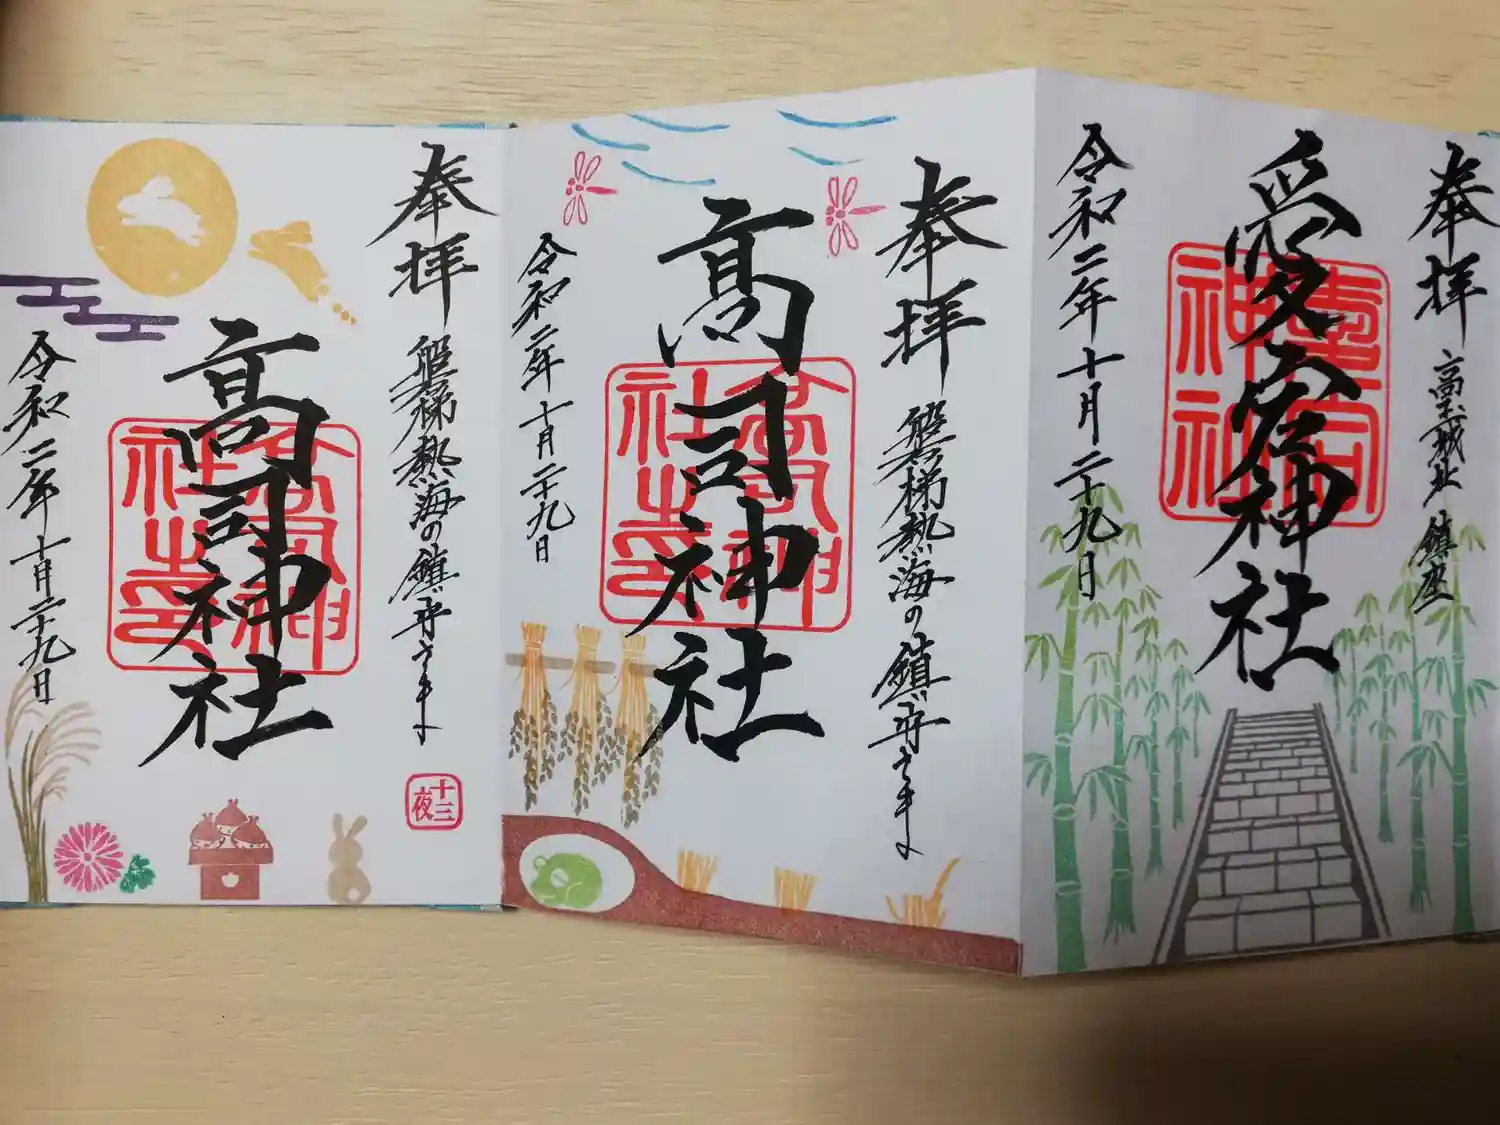 奉拝
高玉城址 鎮座
愛宕神社
愛宕神社
令和二年十月二十九日
奉拝
磐梯熱海の鎮守さま
高司神社
高司神社之印
令和二年十月二十九日
奉拝
磐梯熱海の鎮守さま
十三夜
高司神社
高司神社之印
令和二年十月二十九日